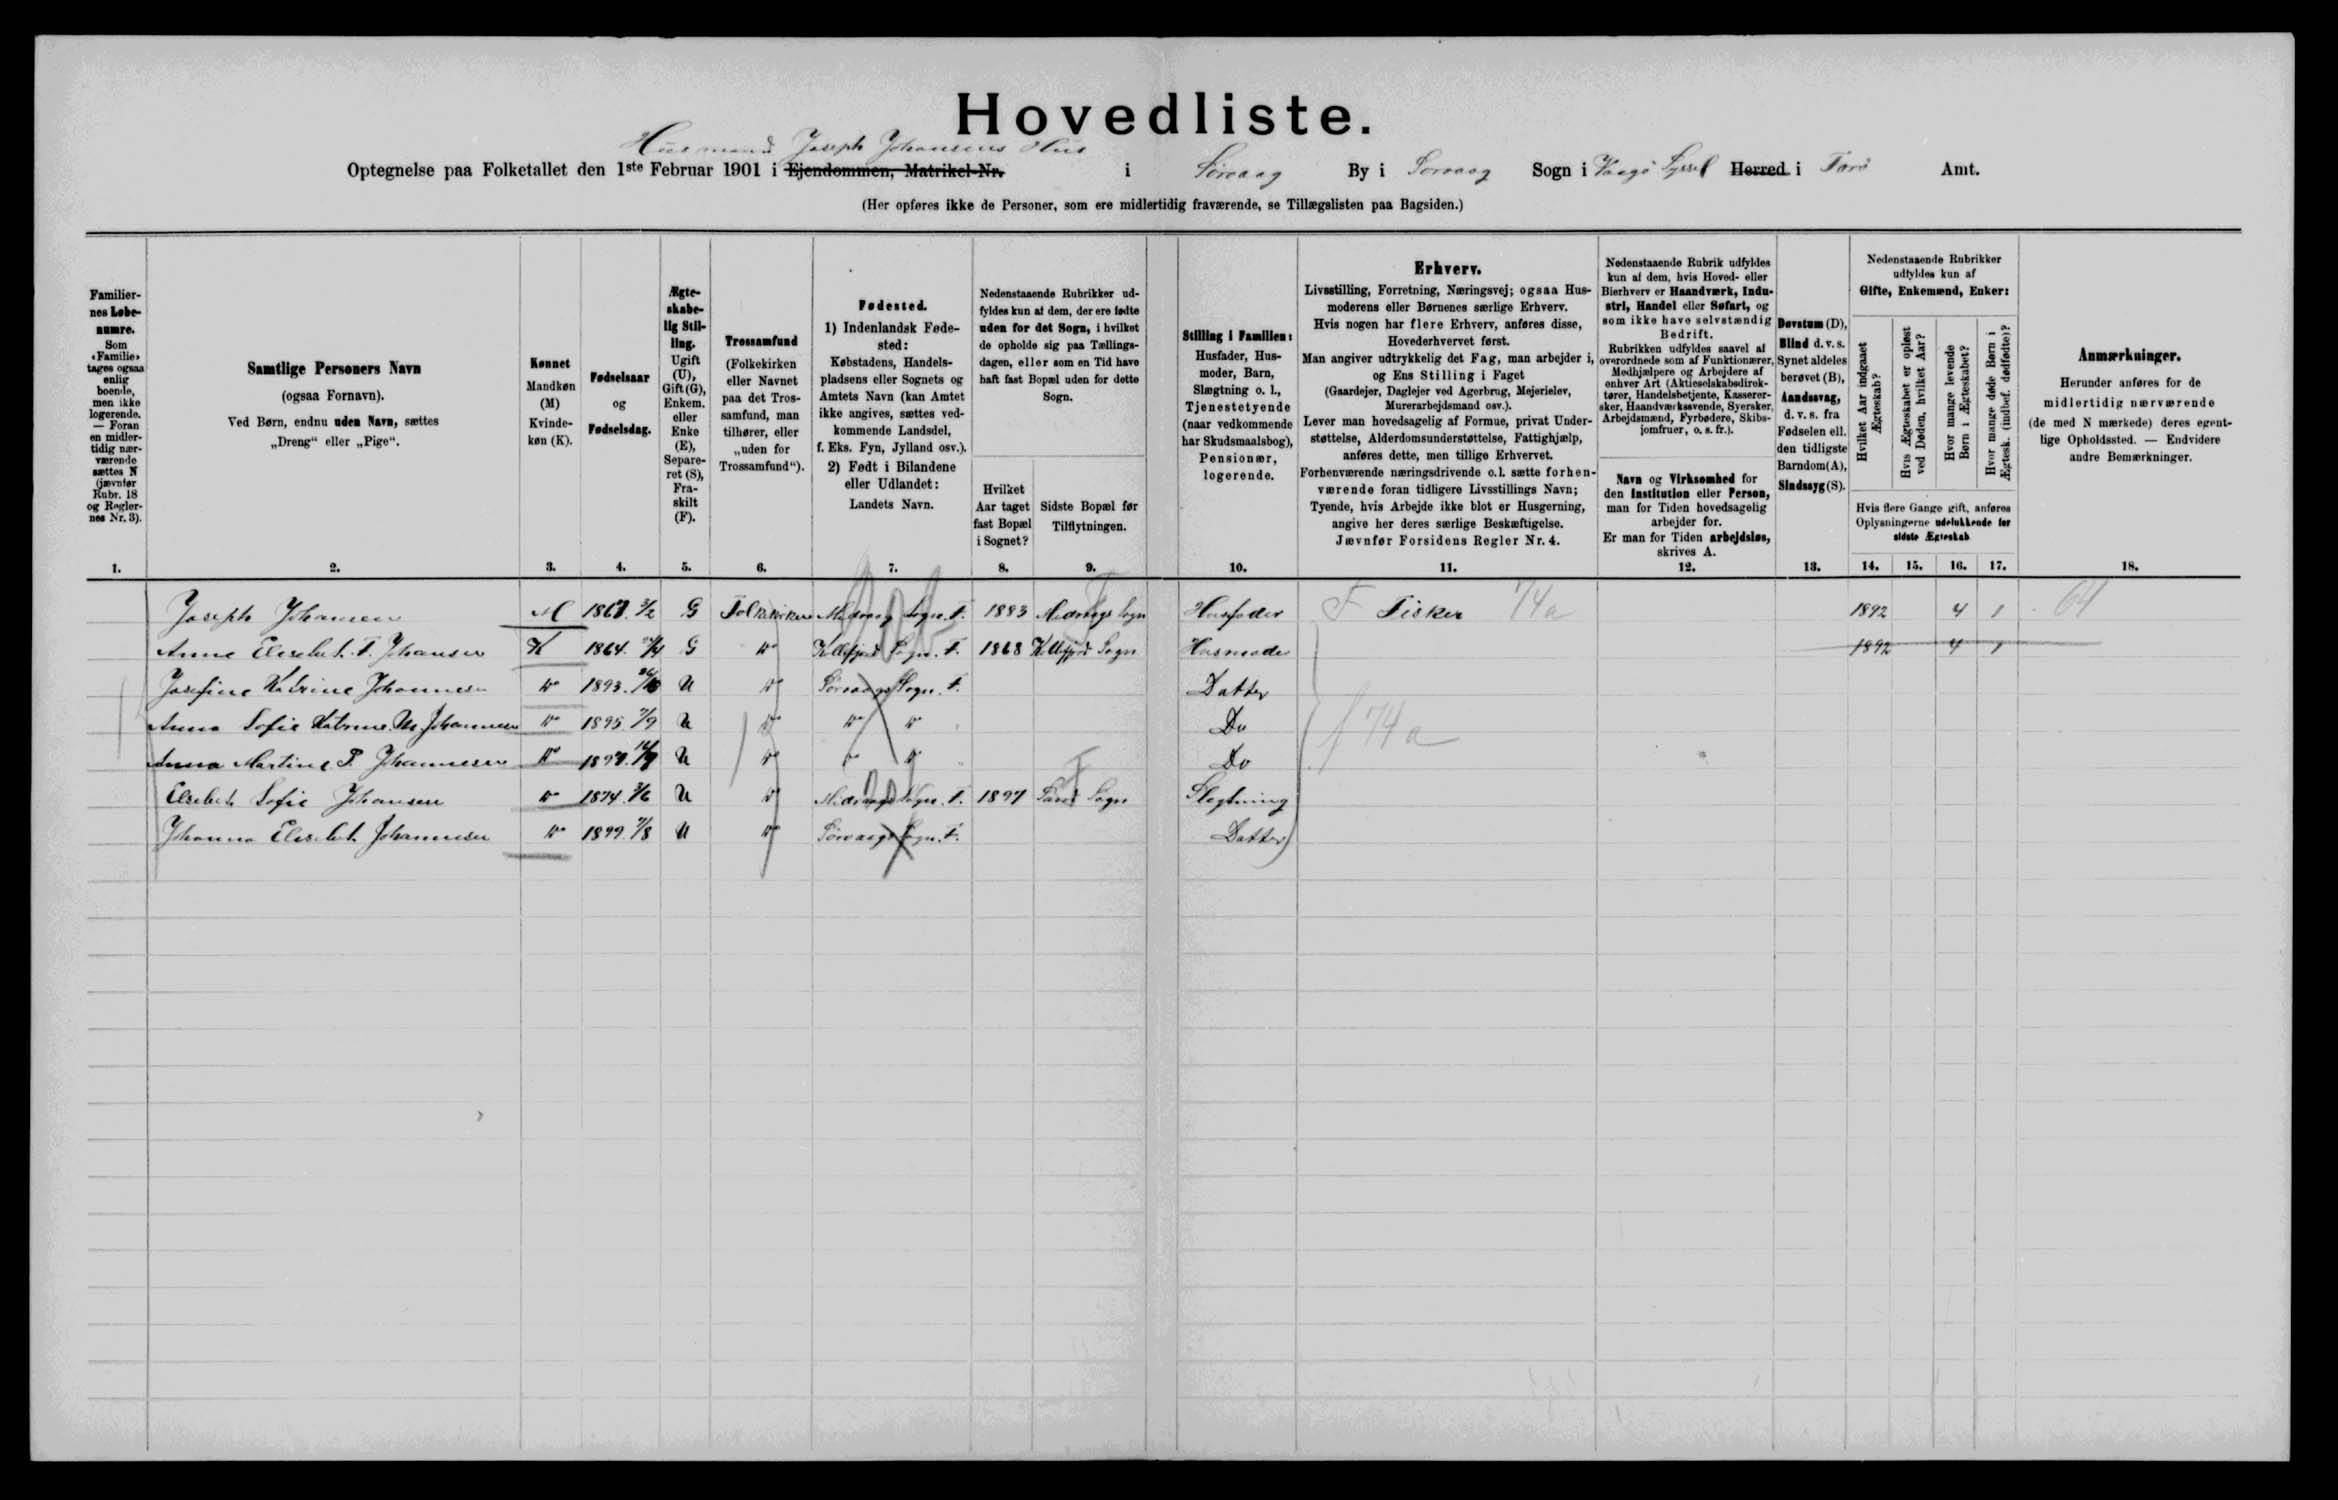 Hovedliste.
Husmand Joseph Johansens Hus
Optegnelse paa Folketallet den 1ste Februar 1901 i Ejendommen, Matrikel-Nr. i Sörvaag By i Sörvaag Sogn i Vaagø Syssel Herred i Færø Amt.
(Her opføres ikke de Personer, som ere midlertidig fraværende, se Tillægslisten paa Bagsiden.)
Familiernes Løbenumre.
Som
«Familie»
tages ogsaa
enlig
boende,
men ikke
logerende.
— Foran
en midler-
tidig nær-
værende
sættes N
(jævnfør
Rubr. 18
og Regler-
nes Nr. 3).
1.
Samtlige Personers Navn
(ogsaa Fornavn).
Ved Børn, endnu uden Navn, sættes
„Dreng“ eller „Pige“.
2.
Kønnet
Mandkøn
(M)
Kvinde-
køn (K).
3.
Fødselsaar
og
Fødselsdag.
4.
Ægte-
skabe-
lig Stil-
ling.
Ugift
(U),
Gift (G),
Enkem.
eller
Enke
(E),
Separe-
ret (S),
Fra-
skilt
(F).
5.
Trossamfund
(Folkekirken
eller Navnet
paa det Tros-
samfund, man
tilhører, eller
„uden for
Trossamfund“).
6.
Fødested.
1) Indenlandsk Føde-
sted:
Købstadens, Handels-
pladsens eller Sognets og
Amtets Navn (kan Amtet
ikke angives, sættes ved-
kommende Landsdel,
f. Eks. Fyn, Jylland osv.).
2) Født i Bilandene
eller Udlandet:
Landets Navn.
7.
Nedenstaaende Rubrikker ud-
fyldes kun af dem, der ere fødte
uden for det Sogn, i hvilket
de opholde sig paa Tællings-
dagen, eller som en Tid have
haft fast Bopæl uden for dette
Sogn.
Hvilket
Aar taget
fast Bopæl
i Sognet?
8.
Sidste Bopæl før
Tilflytningen.
9.
Stilling i Familien:
Husfader, Hus-
moder, Barn,
Slægtning o. l.,
Tjenestetyende
(naar vedkommende
har Skudsmaalsbog),
Pensionær,
logerende.
10.
Erhverv.
Livsstilling, Forretning, Næringsvej; ogsaa Hus-
moderens eller Børnenes særlige Erhverv.
Hvis nogen har flere Erhverv, anføres disse,
Hovederhvervet først.
Man angiver udtrykkelig det Fag, man arbejder i,
og Ens Stilling i Faget
(Gaardejer, Daglejer ved Agerbrug, Mejerielev,
Murerarbejdsmand osv.).
Lever man hovedsagelig af Formue, privat Under-
støttelse, Alderdomsunderstøttelse, Fattighjælp,
anføres dette, men tillige Erhvervet.
Forhenværende næringsdrivende o. l. sætte forhen-
værende foran tidligere Livsstillings Navn;
Tyende, hvis Arbejde ikke blot er Husgerning,
angive her deres særlige Beskæftigelse.
Jævnfør Forsidens Regler Nr. 4.
11.
Nedenstaaende Rubrik udfyldes
kun af dem, hvis Hoved- eller
Bierhverv er Haandværk, Indu-
stri, Handel eller Søfart, og
som ikke have selvstændig
Bedrift.
Rubrikken udfyldes saavel af
overordnede som af Funktionærer,
Medhjælpere og Arbejdere af
enhver Art (Aktieselskabsdirek-
tører, Handelsbetjente, Kasserer-
sker, Haandværkssvende, Syersker,
Arbejdsmænd, Fyrbødere, Skibs-
jomfruer, o. s. fr.).
Navn og Virksomhed for
den Institution eller Person,
man for Tiden hovedsagelig
arbejder for.
Er man for Tiden arbejdsløs,
skrives A.
12.
Døvstum (D),
Blind d. v. s.
Synet aldeles
berøvet (B),
Aandssvag,
d. v. s. fra
Fødselen ell.
den tidligste
Barndom (A),
Sindssyg (S).
13.
Nedenstaaende Rubrikker
udfyldes kun af
Gifte, Enkemænd, Enker:
Hvilket Aar indgaaet
Ægteskab?
Hvis Ægteskabet er opløst
ved Døden, hvilket Aar?
Hvor mange levende
Børn i Ægteskabet?
Hvor mange døde Børn i
Ægtesk. (indbef. dødfødte)?
Hvis flere Gange gift, anføres
Oplysningerne udelukkende for
sidste Ægteskab
14. 15. 16. 17.
Anmærkninger.
Herunder anføres for de
midlertidig nærværende
(de med N mærkede) deres egent-
lige Opholdssted. — Endvidere
andre Bemærkninger.
18.
Joseph Johansen M 3/2 G Folkekirken Midvaag Sogn. F. 1883 Midvaags Sogn Husfader F Fisker 74a 1892 4 1 64
Anne Elisebet. T. Johansen K 1864 G do Kollefjord Sogn. F. 1868 Kollefjord Sogn Husmoder 1892 4 1
Josefine Katrine Johannesen do 1893 U do Sörvaags Sogn. F. Datter
Anna Sofie Katrine M. Johannesen do 1895 7/9 U do do do Do 74a
Anna Martine P. Johannesen do U do do do Do
Elsebet Sofie Johansen do 1874 3/6 U do Midvaags Sogn. F. 1897 Sogn Slegtning
Johanna Elisebet Johannesen do 1899 7/8 U do Sörvaags Sogn. F. Datter